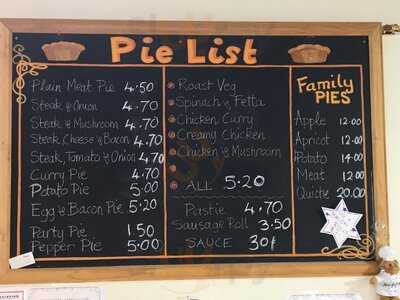 Pie List
Plain Meat Pie 4.50
Steak & Onion 4.70
Steak & Mushroom 4.70
Steak, Cheese & Bacon 4.70
Steak, Tomato & Onion 4.70
Curry Pie 4.70
Potato Pie 5.00
Egg & Bacon Pie 5.20
Party Pie 1.50
Pepper Pie 5.00
Roast Veg
Spinach & Fetta
Chicken Curry
Creamy Chicken
Chicken & Mushroom
ALL 5.20
Pastie 4.70
Sausage Roll 3.50
SAUCE 30¢
Family
PIES
Apple 12.00
Apricot 12.00
Potato 14.00
Meat 12.00
Quiche 20.00